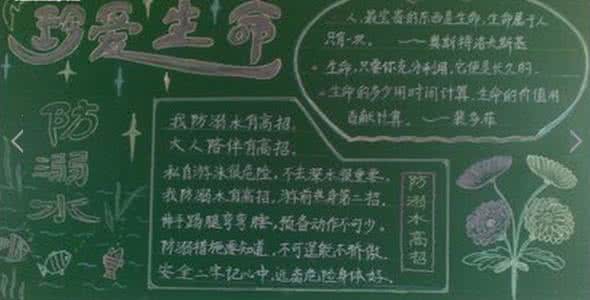 珍爱生命
防溺水
人，最宝贵的东西是生命，生命属于人
只有一次。——奥斯特洛夫斯基
生命，只要你充分利用，它便是长久的。
生命的多少用时间计算，生命的价值用
贡献计算。——裴多菲
我防溺水有高招。
大人陪伴有高招。
私自游泳很危险，不去深水很重要。
我防溺水有高招，游前热身第二招。
伸手踢腿弯弯腰，预备动作不可少。
防溺措施要知道，不可逞能不骄傲。
安全二字记心中，远离危险身体好。
防溺水高招